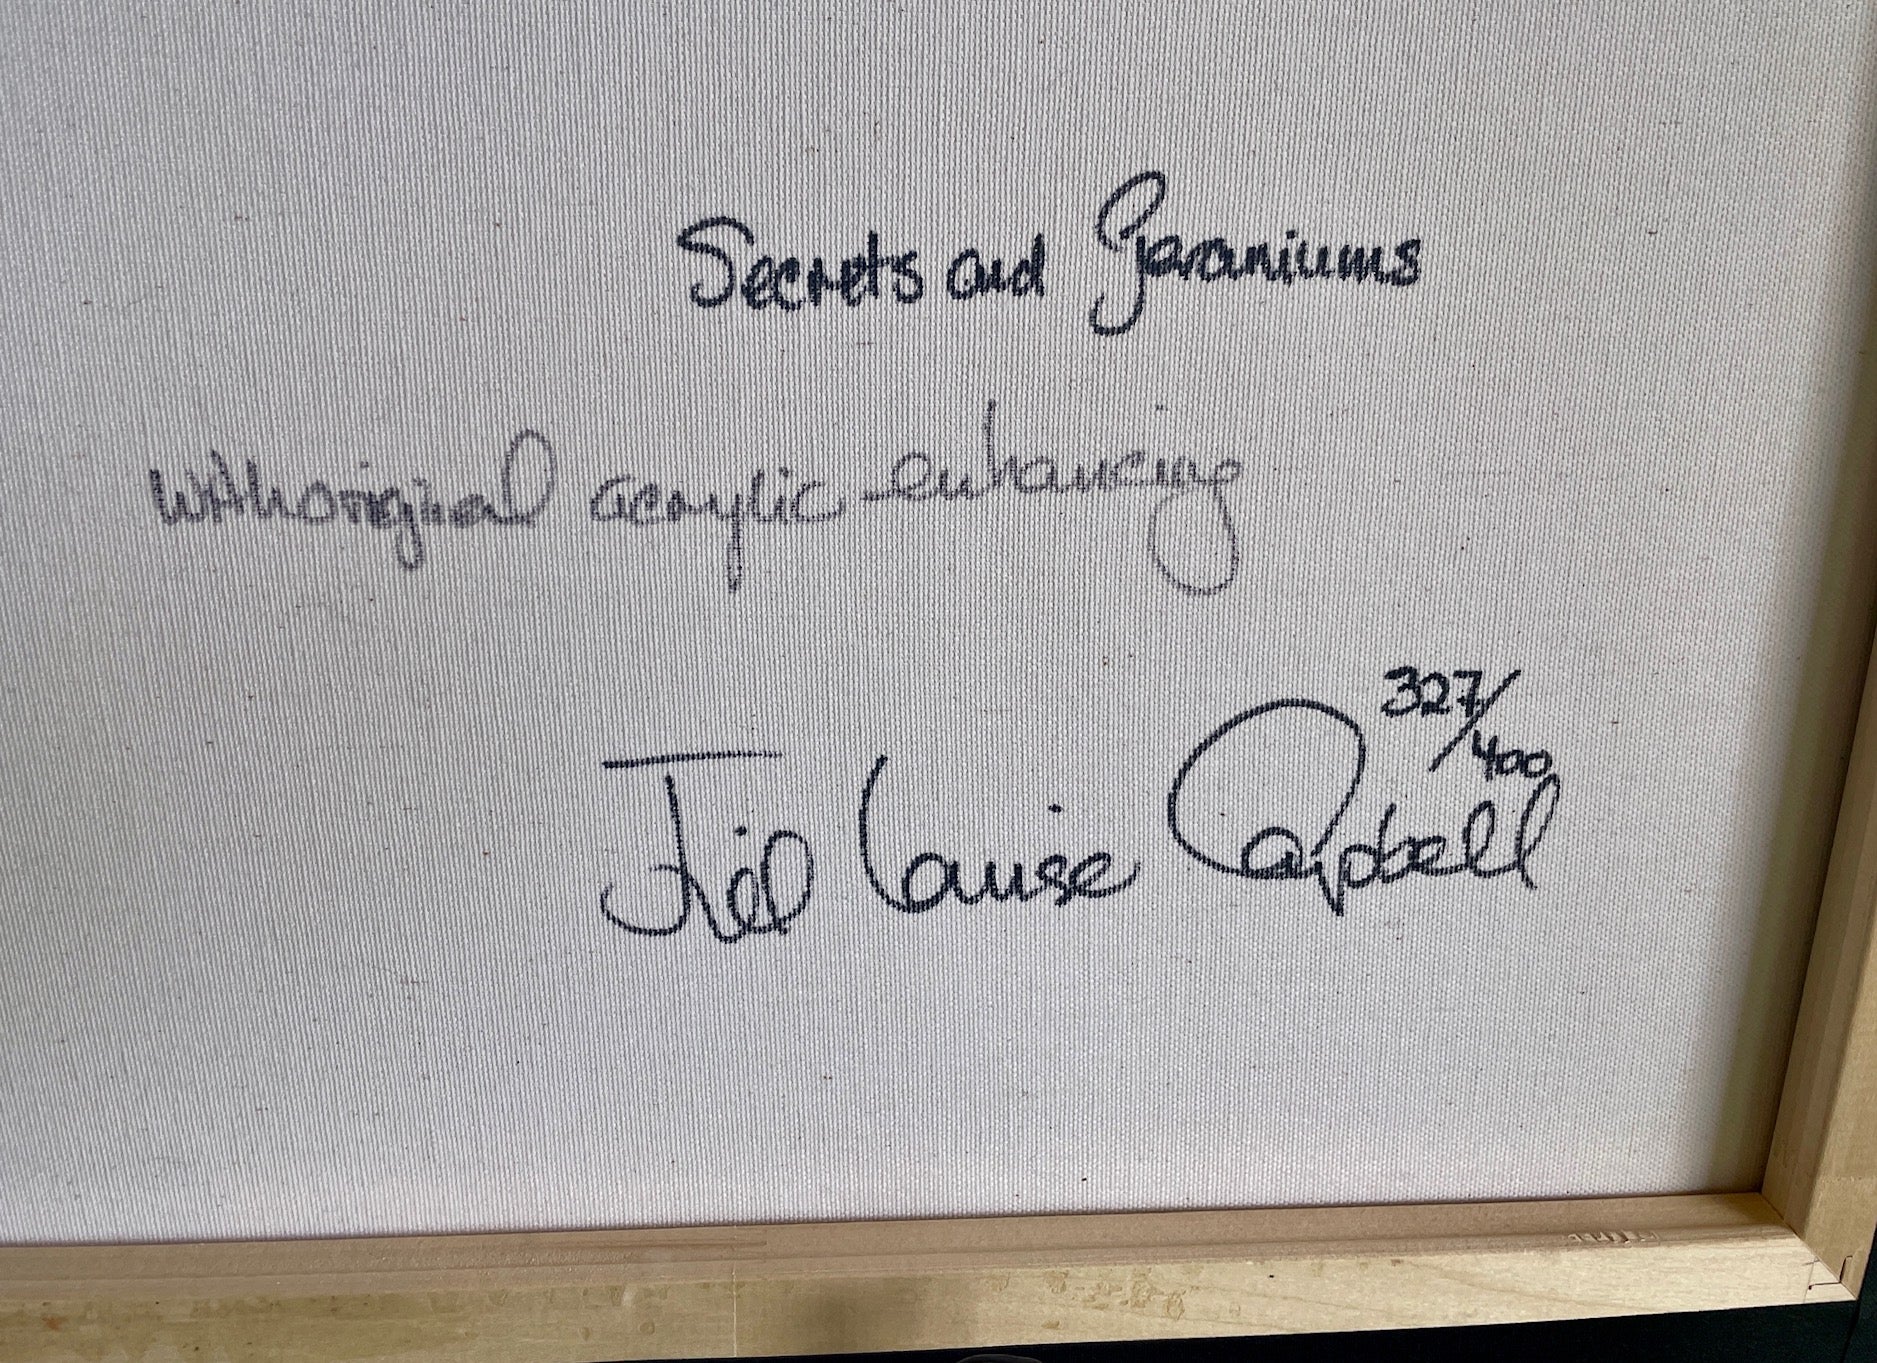 Secrets and Geraniums
with original acrylic enhancing
327/400
Jill Louise Campbell